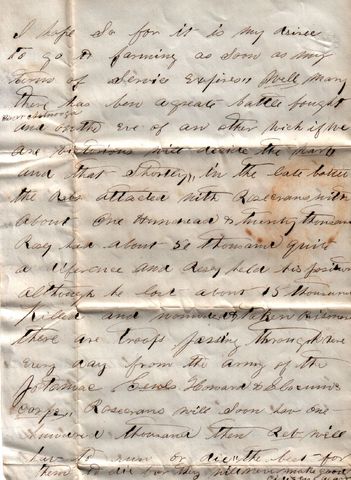 I hope So for it is my desire
to go to farming as soon as my
terms of Service Expires Well Mary
there has ben a greate battle fought
and on the Eve of an other wich if we
are victorious will decide the war
and that Shortly, in the late battle
the Rebs attacted with Rosecrans with
about one Hundread & twenty thousand
Rosy had about 50 thousand quite
a diference and Rosy held his position
although he lost about 15 thousand
Killed and wounded & taken Prisoners
there are troops passing through here
every day from the army of the
Potamac Howard & Slocums
corps, Rosecrans will soon hav one
Hundred thousand then Reb will
hav to run or die the best for
them to die for they will never make good